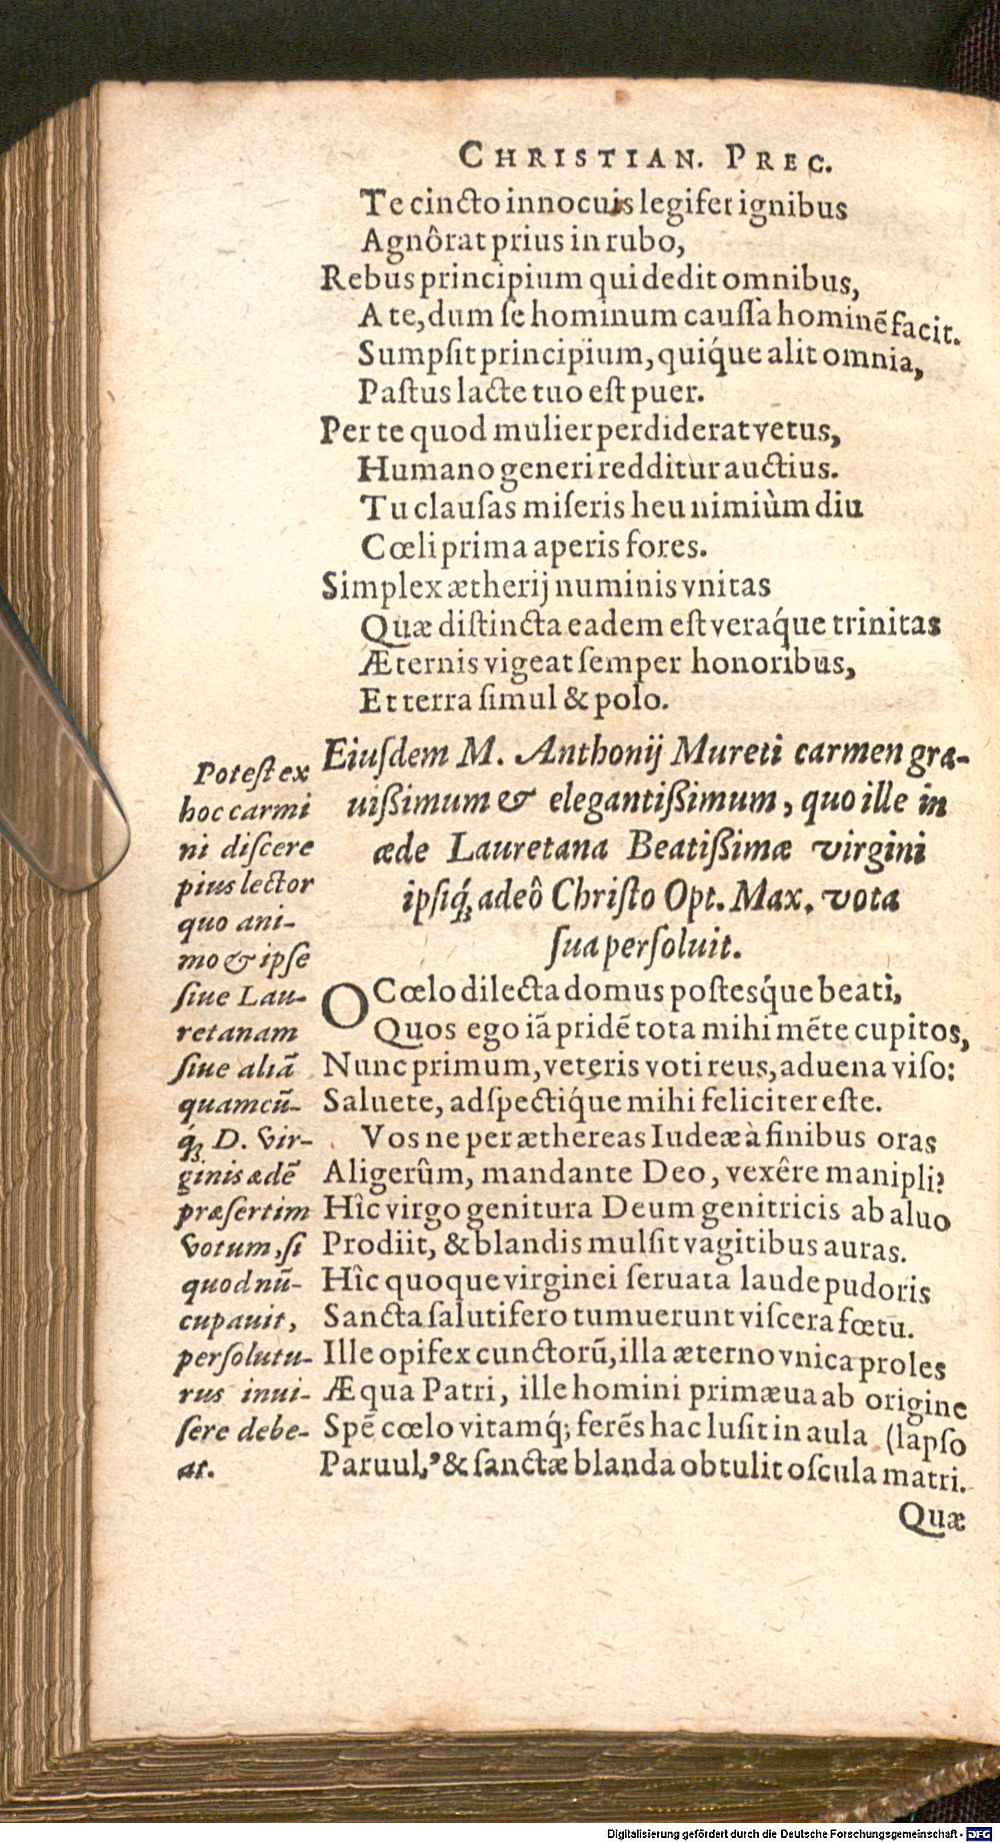 CHRISTIAN. PREC.
Te cincto innocuis legifer ignibus
Agnôrat prius in rubo,
Rebus principium qui dedit omnibus,
A te, dum ſe hominum cauſſa hominẽ facit.
Sumpſit principium, quiq́ue alit omnia,
Paſtus lacte tuo eſt puer.
Per te quod mulier perdiderat vetus,
Humano generi redditur auctius.
Tu clauſas miſeris heu nimiùm diu
Cœli prima aperis fores.
Simplex ætherij numinis vnitas
Quæ diſtincta eadem eſt veraq́ue trinitas
Æternis vigeat ſemper honoribus,
Et terra ſimul & polo.
Eiuſdem M. Anthonij Mureti carmen gra-
uißimum & elegantißimum, quo ille in
æde Lauretana Beatißimæ virgini
ipſiq́ꝫ adeô Chriſto Opt. Max. vota
ſua perſoluit.
Poteſt ex
hoc carmi
ni diſcere
pius lector
quo ani-
mo & ipſe
ſiue Lau-
retanam
ſiue aliã
quamcũ-
q́ꝫ D. Vir-
ginis ædẽ
præſertim
votum, ſi
quod nũ-
cupauit,
perſolutu-
rus inui-
ſere debe-
at.
O Cœlo dilecta domus poſteſq́ue beati,
Quos ego iã pridẽ tota mihi mẽte cupitos,
Nunc primum, veteris voti reus, aduena viſo:
Saluete, adſpectiq́ue mihi feliciter eſte.
Vos ne per æthereas Iudeæ à finibus oras
Aligerûm, mandante Deo, vexêre manipli?
Hîc virgo genitura Deum genitricis ab aluo
Prodiit, & blandis mulſit vagitibus auras.
Hîc quoque virginei ſeruata laude pudoris
Sancta ſalutifero tumuerunt viſcera fœtu.
Ille opifex cunctorũ, illa æterno vnica proles
Æqua Patri, ille homini primæua ab origine
Spẽ cœlo vitamq́; ferẽs hac luſit in aula (lapſo
Paruul,ꝰ & ſanctæ blanda obtulit oſcula matri.
Quæ
Digitalisierung gefördert durch die Deutsche Forschungsgemeinschaft - DFG